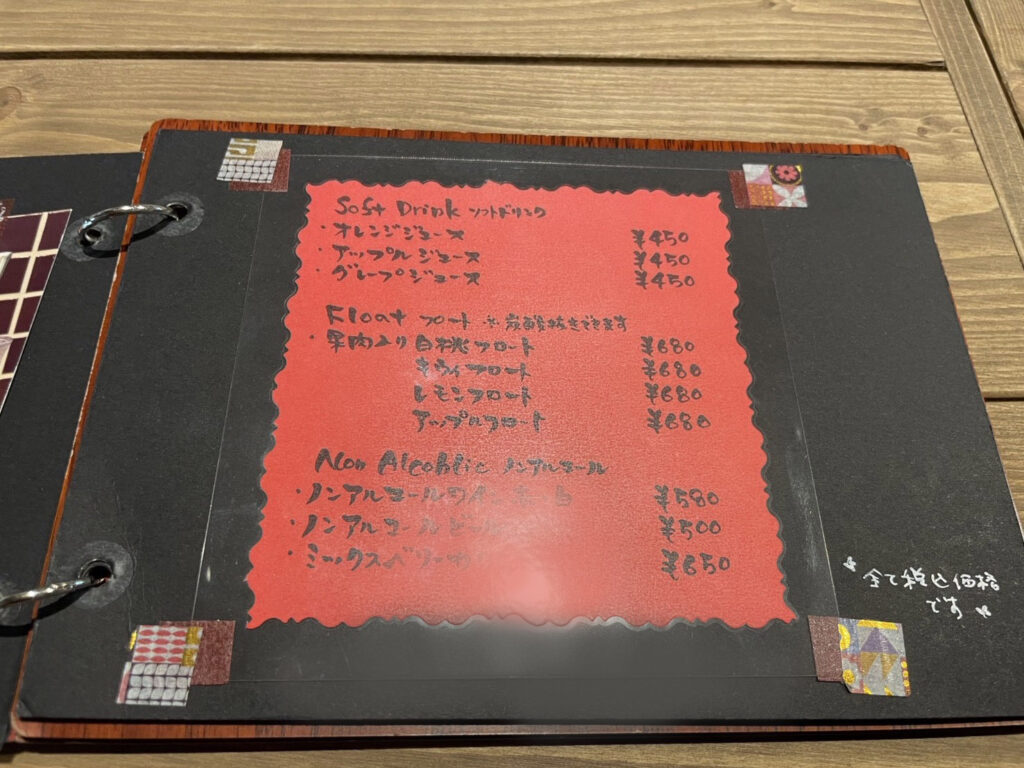 Soft Drink ソフトドリンク
・オレンジジュース ¥450
・アップルジュース ¥450
・グレープジュース ¥450
Float フロート ※炭酸抜きできます
・果肉入り白桃フロート ¥680
キウイフロート ¥680
レモンフロート ¥680
アップルフロート ¥680
Non Alcohlic ノンアルコール
・ノンアルコールワイン ¥580
・ノンアルコールビール ¥500
・ミックスベリー ¥650
全て税込価格
です